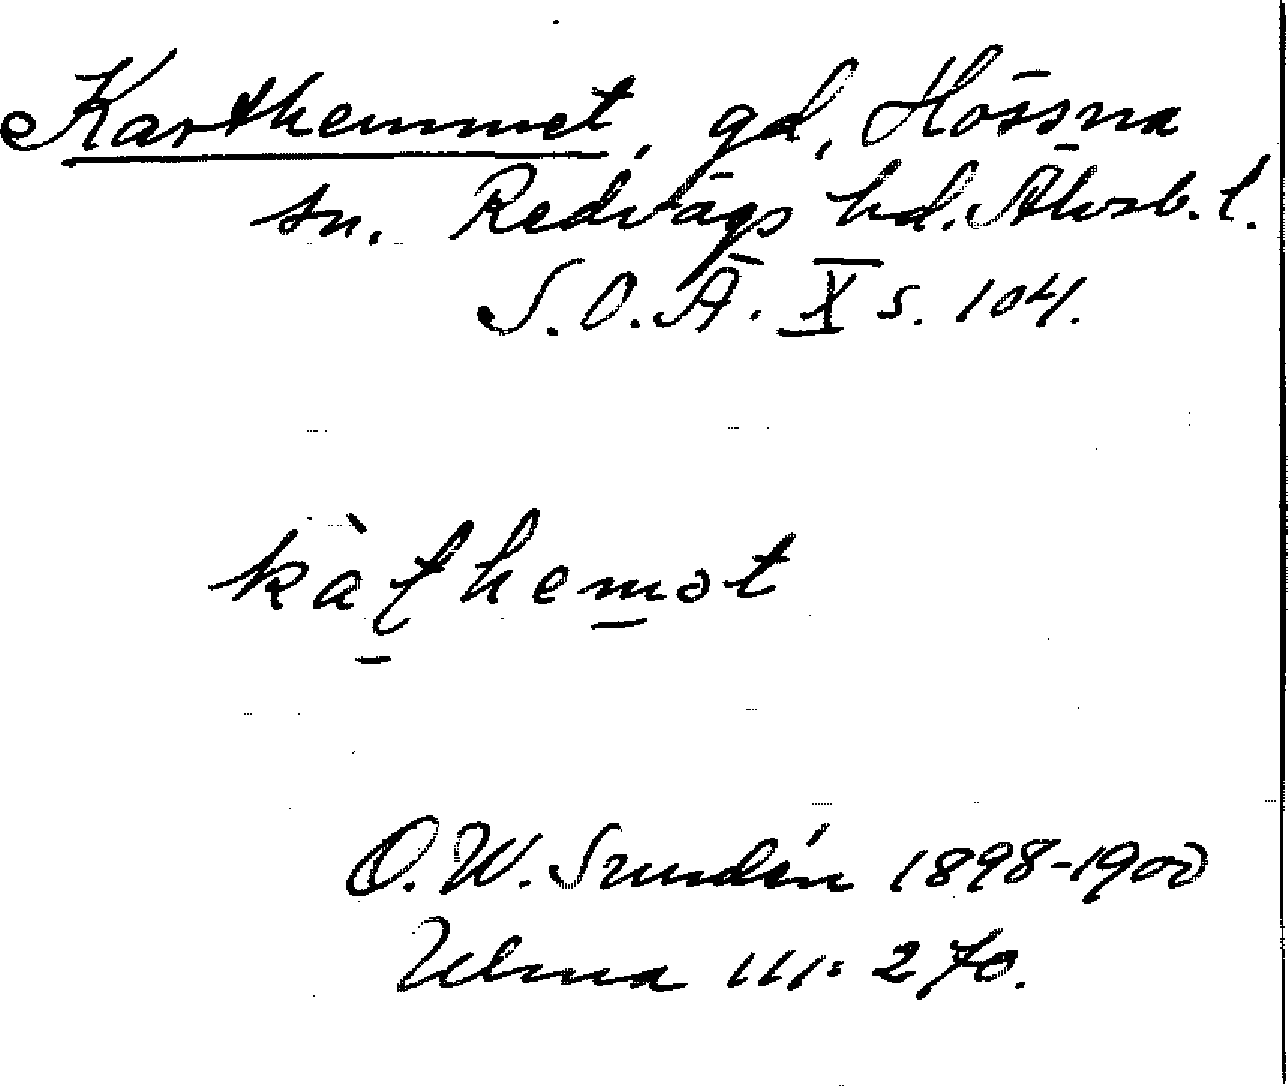 Karthemmet, gd, Hössna
sn. Redvägs hd. Älvsb. l.
S.O.Ä. X s. 104.
kàṯhem̱ət
O.W. Sundén 1898-1900
Ulma 111:270.